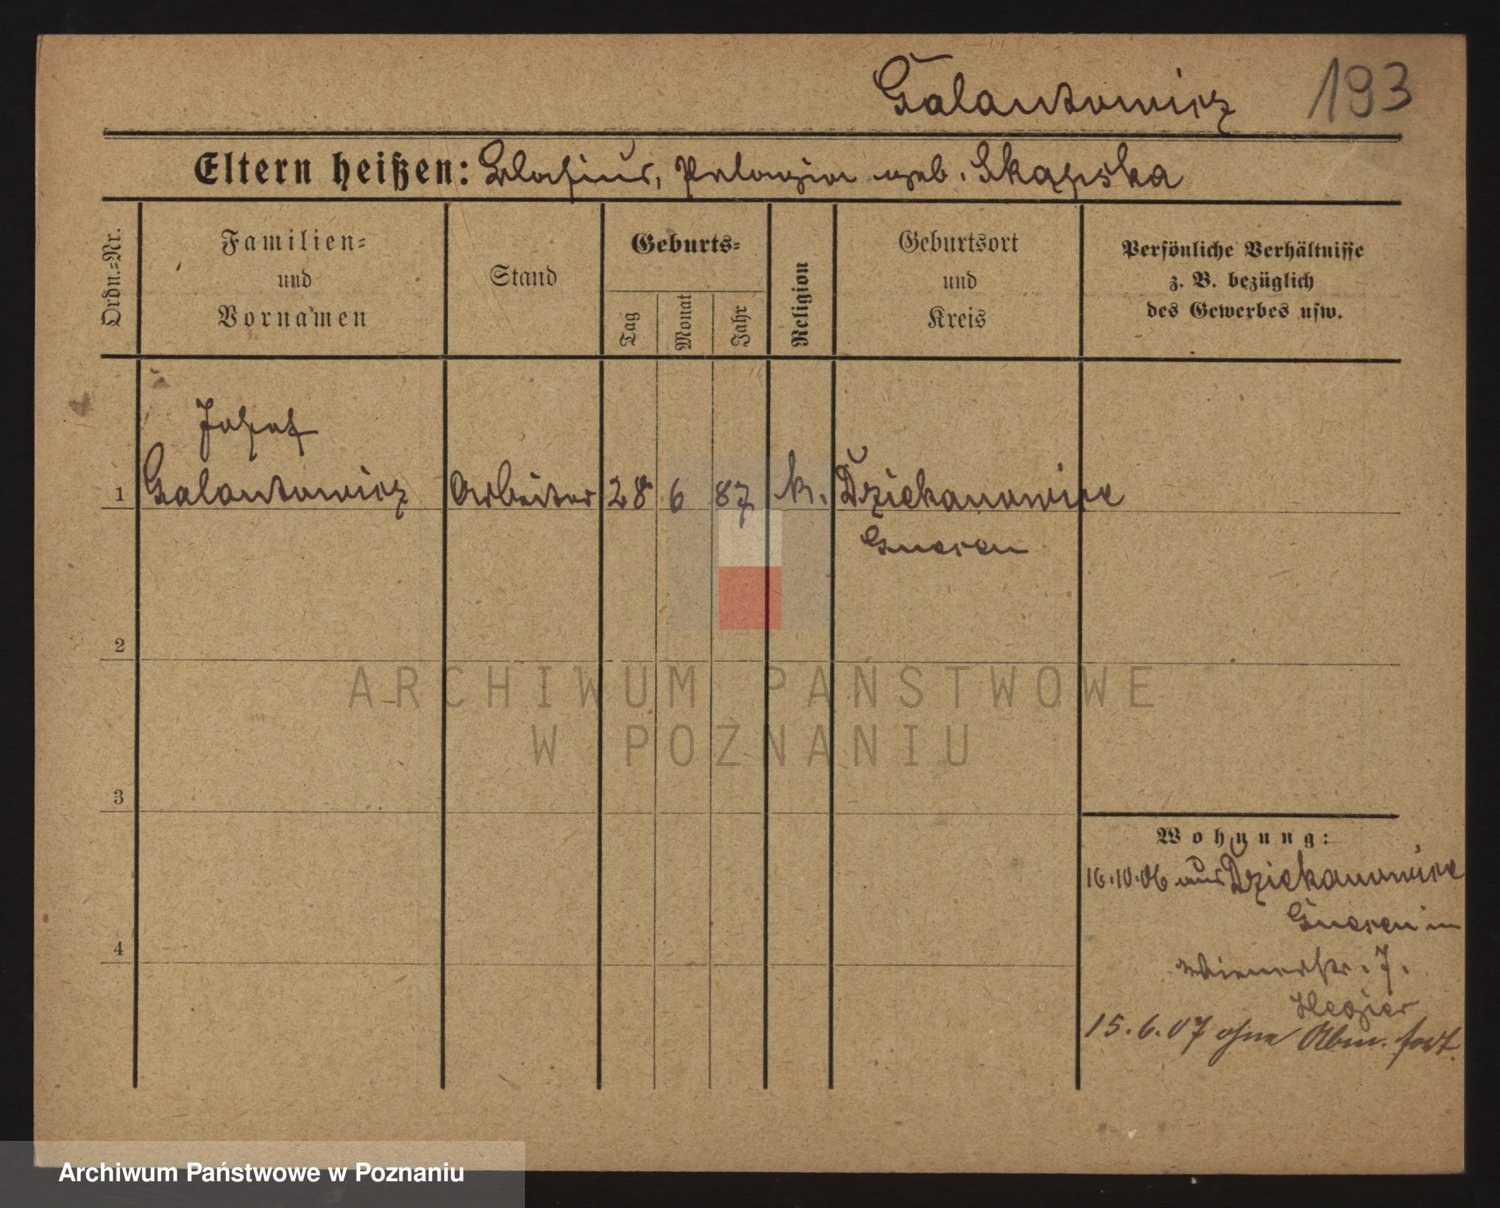 Galantowicz 193
Eltern heißen: Blasius, Pelagia geb. Skapska
Ordn.=Nr.
Familien=
und
Vornamen
Stand
Geburts=
Tag
Monat
Jahr
Religion
Geburtsort
und
Kreis
Persönliche Verhältnisse
z. B. bezüglich
des Gewerbes usw.
Josef
1 Galantowicz Arbeiter 28 6 87 k. Dziekanowice
Gnesen
2
ARCHIWUM PAŃSTWOWE
W POZNANIU
3
Wohnung:
16.10.06 aus Dziekanowice
Gnesen in
Wienerstr. 7.
15.6.07 ohne Abm. fort.
4
Archiwum Państwowe w Poznaniu